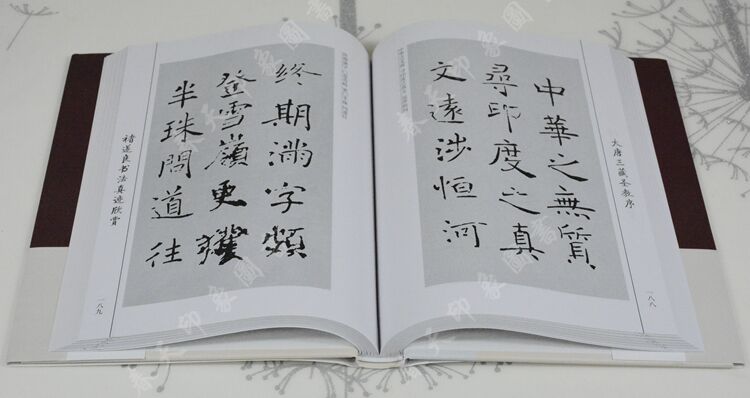 中華之無質
尋印度之真
文遠涉恒河
大唐三藏圣教序
一八八
終期滿字頻
登雪嶺更獲
半珠問道往
褚遂良书法真迹欣赏
一八九